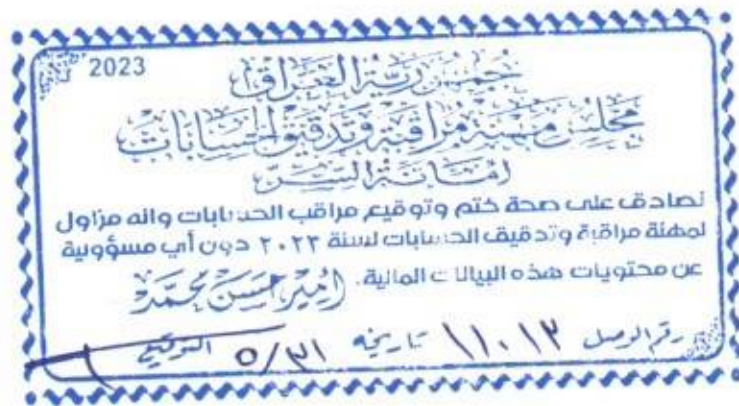 2023
جمهورية العراق
مجلس مهنة مراقبة وتدقيق الحسابات
امانة السر
نصادق على صحة ختم وتوقيع مراقب الحسابات وانه مزاول
لمهنة مراقبة وتدقيق الحسابات لسنة ٢٠٢٣ دون أي مسؤولية
عن محتويات هذه البيانات المالية.
امير حسن محمد
رقم الوصل ١١٠١٣ تاريخه ٥/٣١ التوقيع